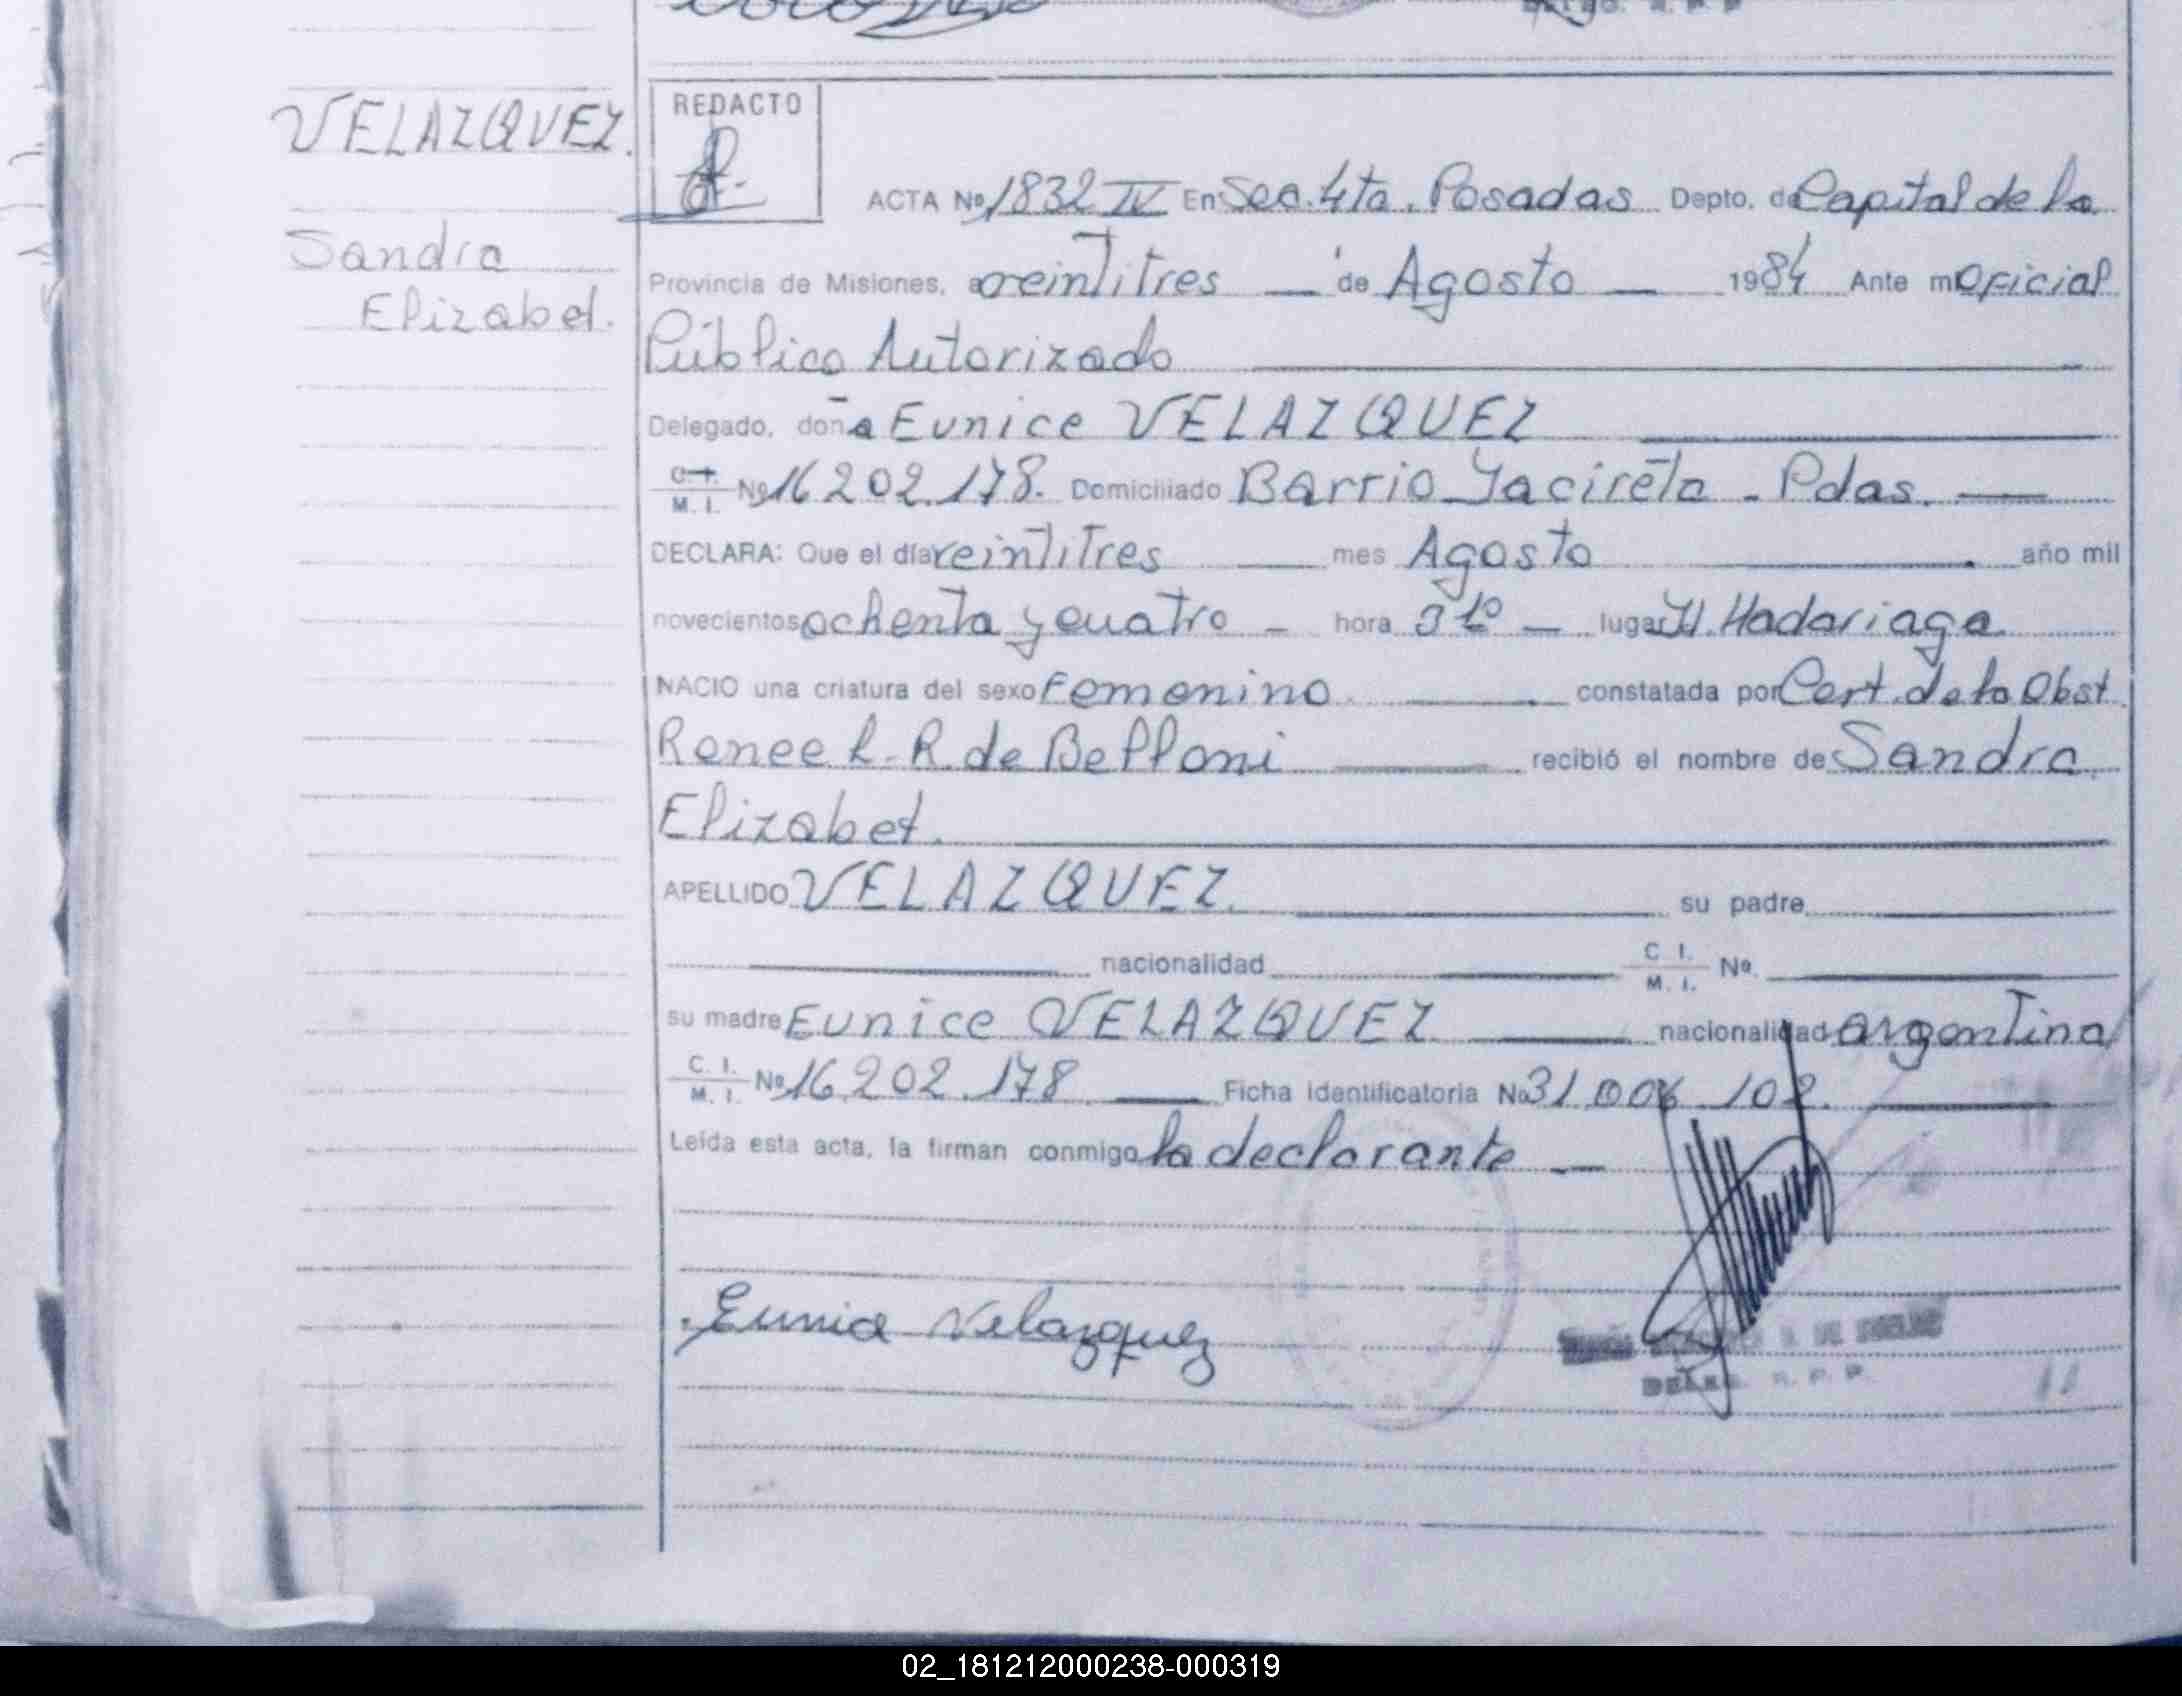 VELAZQUEZ.
Sandra
Elizabet.
REDACTO
ACTA Nº 1832 IV En Sec. 4ta. Posadas Depto. de Capital de la
Provincia de Misiones, a veintitres — de Agosto — 1984 Ante mí Oficial
Público Autorizado
Delegado, doña Eunice VELAZQUEZ
C. I. M. I. Nº 16.202.178. Domiciliado Barrio Yaciretá - Pdas. —
DECLARA: Que el día veintitres — mes Agosto — año mil
novecientos ochenta y cuatro - hora 3 — lugar H. Madariaga
NACIO una criatura del sexo Femenino — constatada por Cert. de la Obst.
Renee L. R. de Belloni — recibió el nombre de Sandra
Elizabet.
APELLIDO VELAZQUEZ. — su padre —
— nacionalidad — C. I. M. I. Nº —
su madre Eunice VELAZQUEZ — nacionalidad argentina
C. I. M. I. Nº 16.202.178 — Ficha identificatoria Nº 31.006.102. —
Leída esta acta, la firman conmigo la declarante —
Eunice Velazquez
R. P. P.
02_181212000238-000319